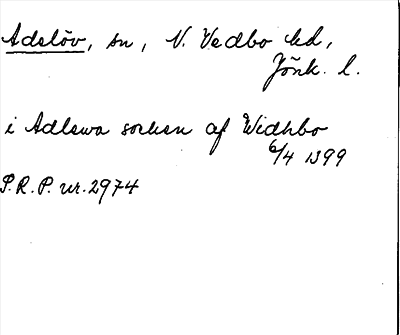 Adelöv, sn, N. Vedbo hd,
Jönk. l.
i Adlewa sochen af Widhbo
6/4 1399
S.R.P. nr. 2974